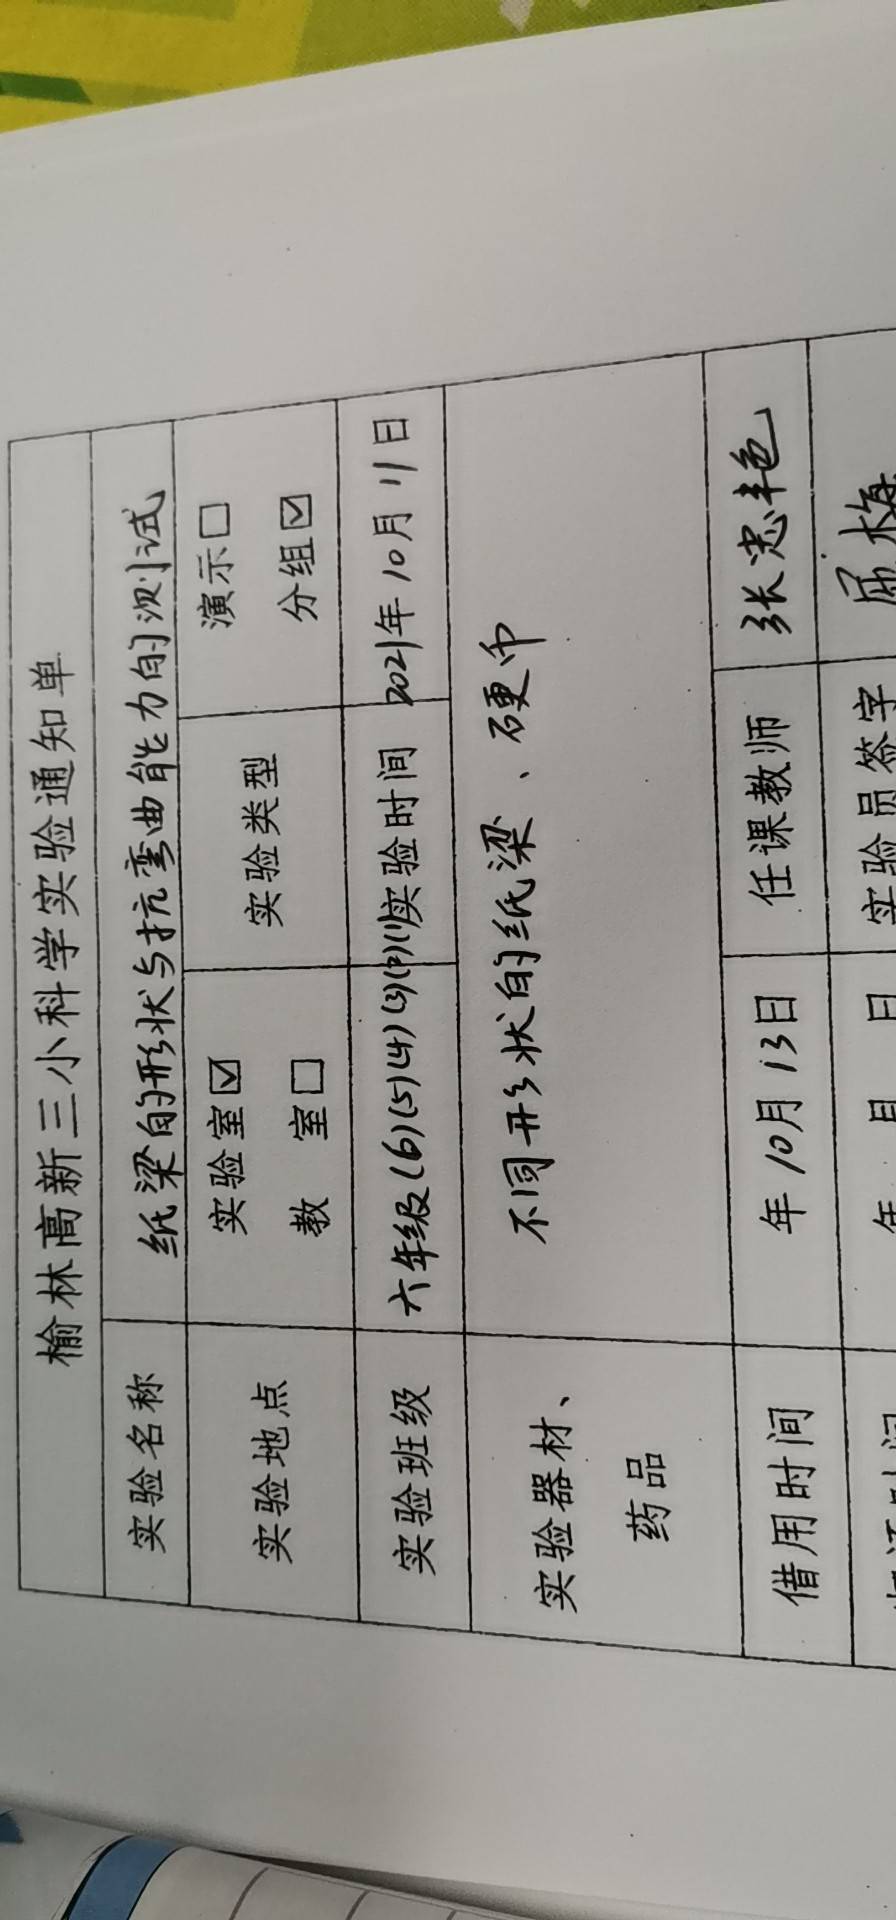 榆林高新三小科学实验通知单
实验名称 纸梁的形状与抗弯曲能力的测试
实验地点 实验室☑ 教 室☐ 实验类型 演示☐ 分组☑
实验班级 六年级(6)(5)(4)(3)(2)(1) 实验时间 2021年10月11日
实验器材、
药品
不同形状的纸梁、硬币
借用时间 年10月13日 任课教师 张忠艳
年 月 日 实验员签字